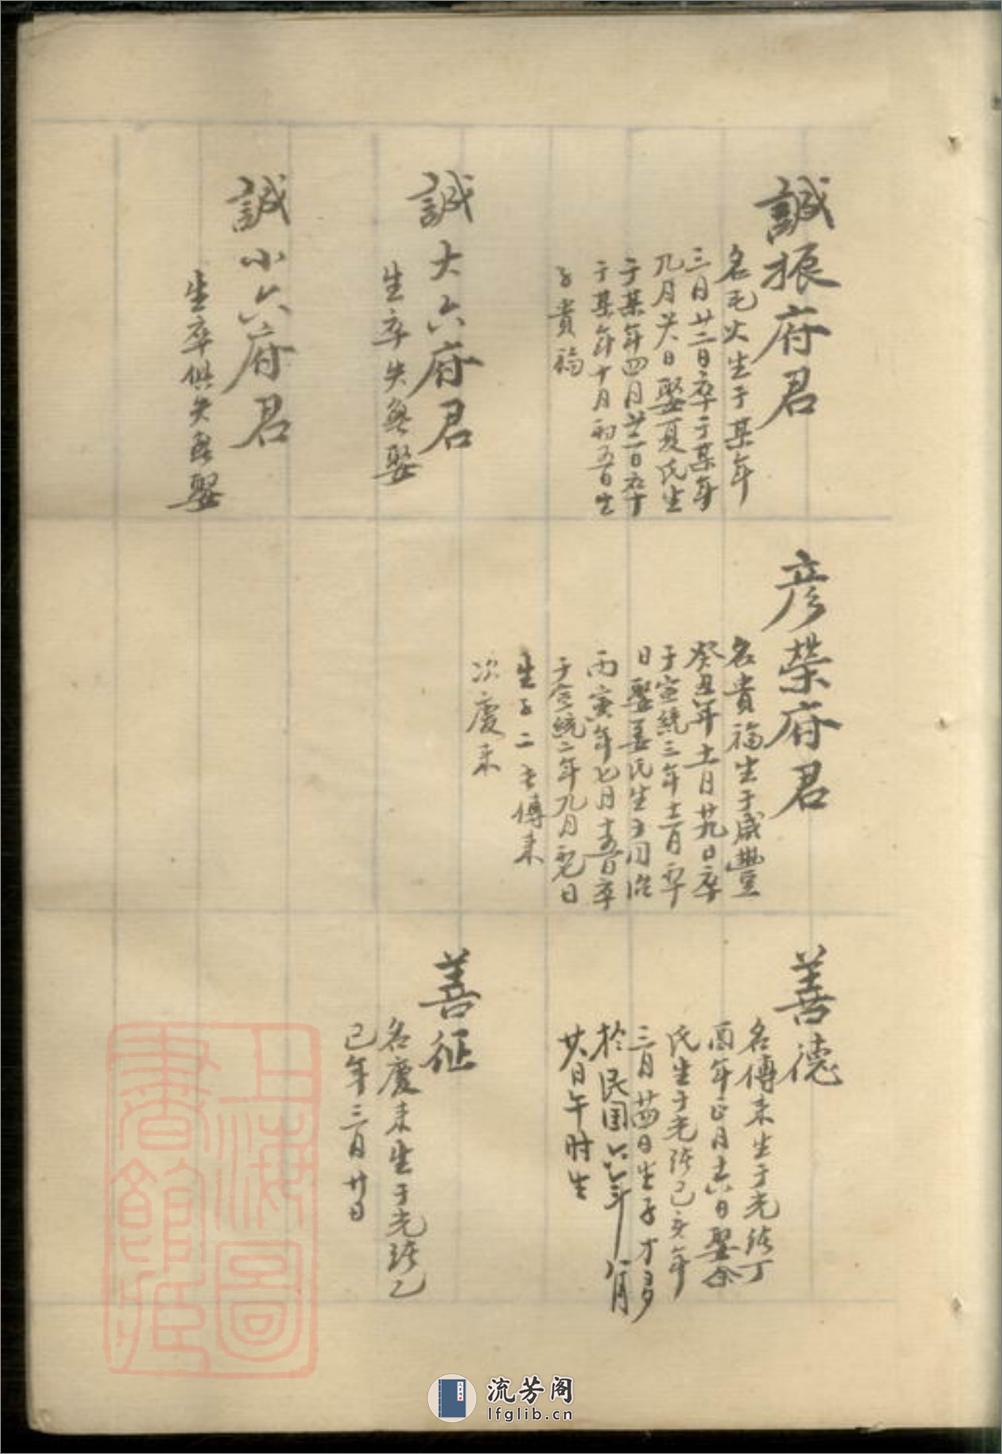 誠振府君
名毛火生于某年
三日廿二日卒于某年
九月廿八日娶夏氏生
于某年四月廿二日卒
于某年十月初五日生
子貴福
誠大六府君
生卒失無娶
誠小六府君
生卒俱失無娶
彦榮府君
名貴福生于咸豐
癸丑年十一月廿九日卒
于宣統三年十二月
日娶姜氏生于同治
丙寅年七月十五日卒
于宣統二年九月初九日
生子二長傳来
次慶来
善德
名傳来生于光緒丁
酉年正月十六日娶余
氏生于光緒己亥年
三月廿四日生子才多
於民国六年八月
廿八日午時生
善征
名慶来生于光緒乙
巳年三月廿日
上海圖
書館藏
流芳阁
lfglib.cn